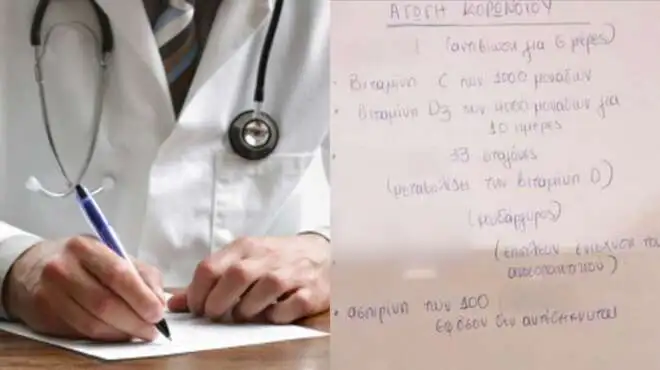 ΑΓΩΓΗ ΚΟΡΩΝΟΙΟΥ
(αντιβίωση για 6 μέρες)
• Βιταμίνη C των 1000 μονάδων
• Βιταμίνη D3 των 4000 μονάδων για
10 ημέρες
33 σταγόνες
(μεταβολίζει την βιταμίνη D)
(ψευδάργυρος)
(επιπλέον ενίσχυση του
ανοσοποιητικού)
• ασπιρίνη των 100
εφόσον δεν αντεδείκνυται